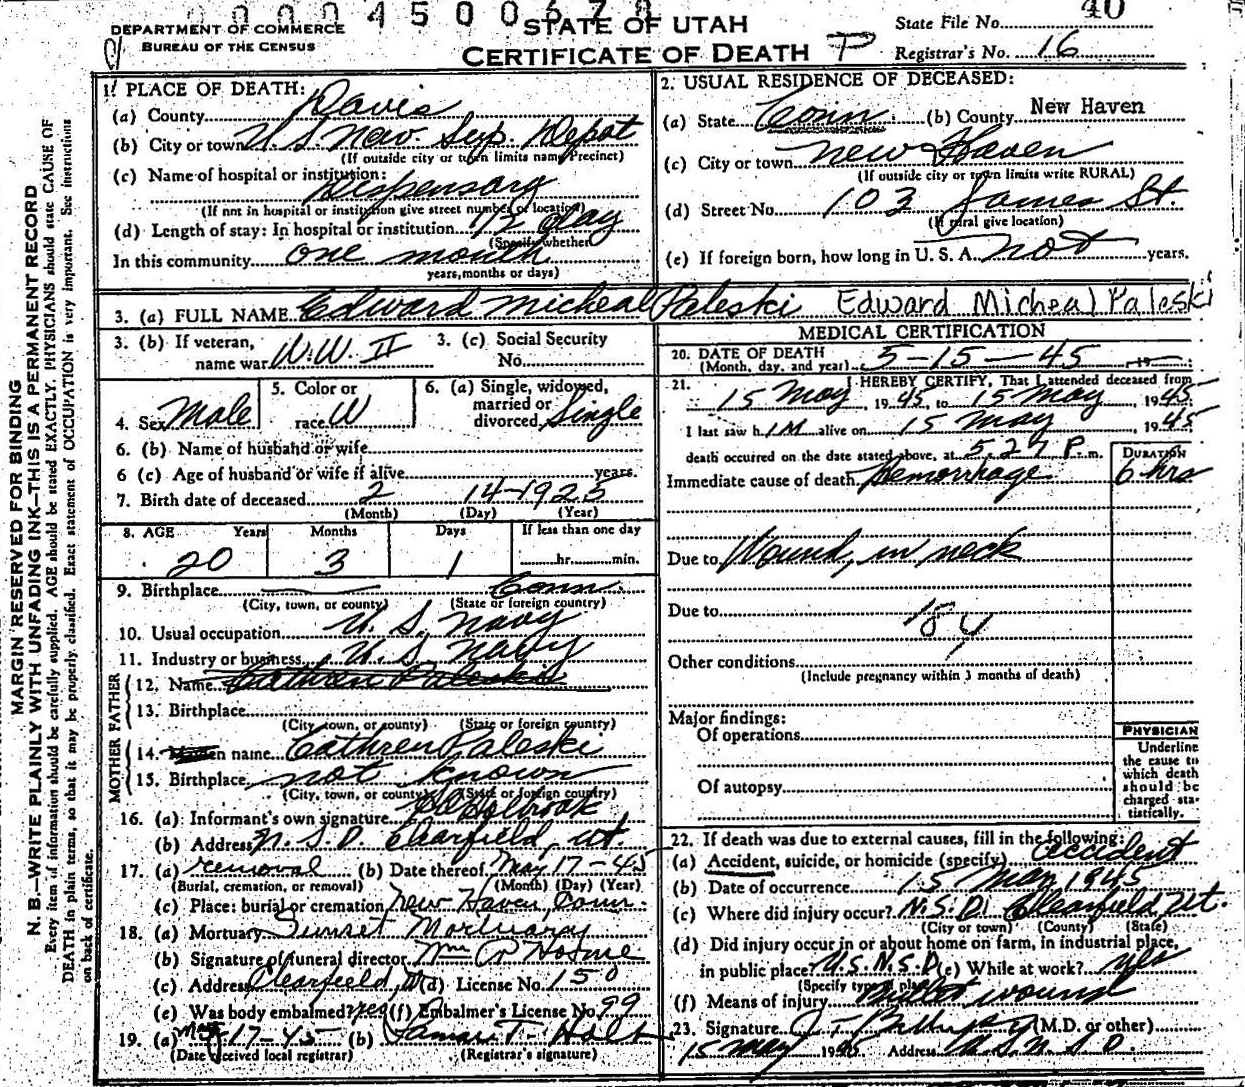 0000450067
DEPARTMENT OF COMMERCE
BUREAU OF THE CENSUS
STATE OF UTAH
CERTIFICATE OF DEATH
State File No. 40
Registrar's No. 16
MARGIN RESERVED FOR BINDING
N. B.—WRITE PLAINLY WITH UNFADING INK—THIS IS A PERMANENT RECORD
Every item of information should be carefully supplied. AGE should be stated EXACTLY. PHYSICIANS should state CAUSE OF
DEATH in plain terms, so that it may be properly classified. Exact statement of OCCUPATION is very important. See instructions
on back of certificate.
1. PLACE OF DEATH:
(a) County Davis
(b) City or town U.S. Nav. Sup. Depot
(If outside city or town limits name Precinct)
(c) Name of hospital or institution:
Dispensary
(If not in hospital or institution give street number or location)
(d) Length of stay: In hospital or institution 1/2 day
(Specify whether
In this community one month
years, months or days)
2. USUAL RESIDENCE OF DECEASED:
(a) State Conn. (b) County New Haven
(c) City or town New Haven
(If outside city or town limits write RURAL)
(d) Street No. 103 James St.
(If rural give location)
(e) If foreign born, how long in U. S. A. not years.
3. (a) FULL NAME Edward Micheal Paleski Edward Micheal Paleski
3. (b) If veteran,
name war W.W. II
3. (c) Social Security
No.
4. Sex Male
5. Color or
race W
6. (a) Single, widowed,
married or
divorced Single
6. (b) Name of husband or wife
6 (c) Age of husband or wife if alive years.
7. Birth date of deceased 2 14-1925
(Month) (Day) (Year)
8. AGE Years Months Days If less than one day
20 3 1 hr. min.
9. Birthplace Conn.
(City, town, or county) (State or foreign country)
10. Usual occupation U. S. Navy
11. Industry or business U. S. Navy
FATHER
12. Name Cathren Paleski
13. Birthplace
(City, town, or county) (State or foreign country)
MOTHER
14. en name Cathren Paleski
15. Birthplace not known
(City, town, or county) (State or foreign country)
16. (a) Informant's own signature Holbrook
(b) Address N. S. D. Clearfield, Ut.
17. (a) removal (b) Date thereof May 17-45
(Burial, cremation, or removal) (Month) (Day) (Year)
(c) Place: burial or cremation New Haven, Conn.
18. (a) Mortuary Sunset Mortuary
(b) Signature of funeral director Wm
(c) Address Clearfield, Ut (d) License No. 150
(e) Was body embalmed? yes (f) Embalmer's License No. 99
19. (a) May 17-45 (b)
(Date received local registrar) (Registrar's signature)
MEDICAL CERTIFICATION
20. DATE OF DEATH
(Month, day, and year) 5-15-45 19
21. I HEREBY CERTIFY, That I attended deceased from
15 May, 1945, to 15 May, 1945
I last saw h IM alive on 15 May, 1945
death occurred on the date stated above, at 5:27 P. m.
DURATION
Immediate cause of death Hemorrhage 6 hrs
Due to Wound, in neck
Due to
184
Other conditions
(Include pregnancy within 3 months of death)
Major findings:
Of operations
Of autopsy
PHYSICIAN
Underline
the cause to
which death
should be
charged sta-
tistically.
22. If death was due to external causes, fill in the following:
(a) Accident, suicide, or homicide (specify) Accident
(b) Date of occurrence 15 May 1945
(c) Where did injury occur? N.S.D. Clearfield, Ut.
(City or town) (County) (State)
(d) Did injury occur in or about home on farm, in industrial place,
in public place? U.S.N.S.D. (e) While at work? yes
(Specify type of place)
(f) Means of injury Bullet wound
23. Signature (M.D. or other)
15 May 1945 Address U.S.N.S.D.